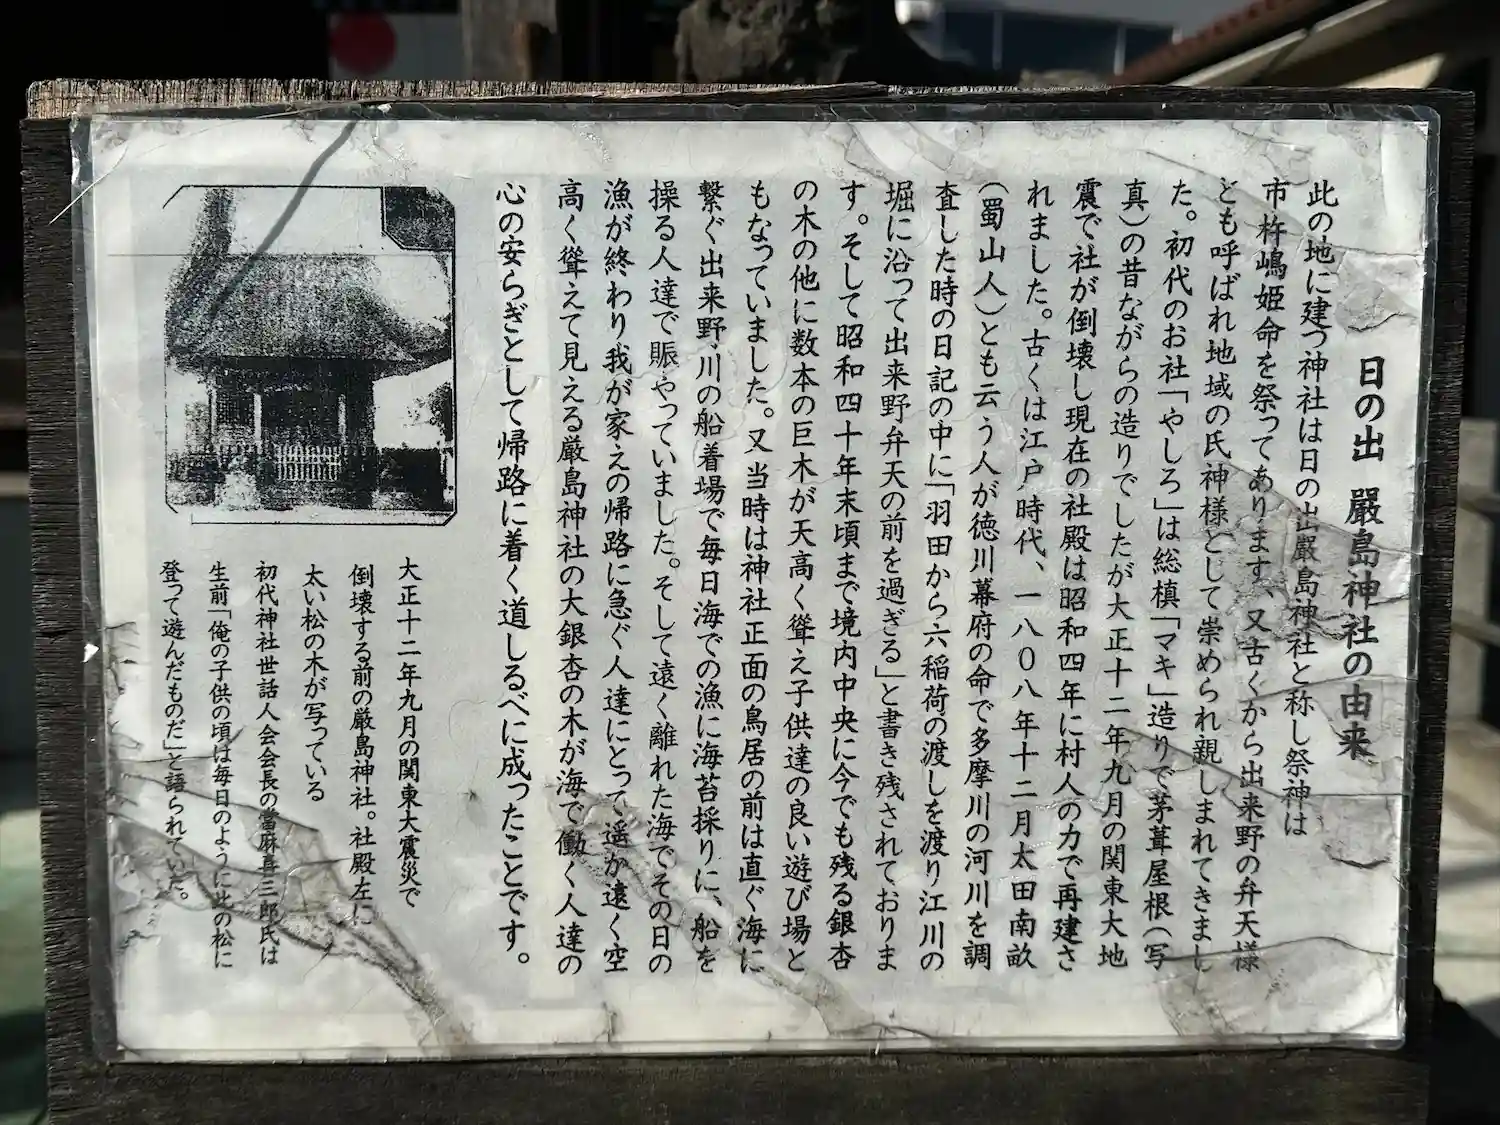 日の出 嚴島神社の由来
此の地に建つ神社は日の出嚴島神社と称し祭神は
市杵嶋姫命を祭ってあります、又古くから出来野の弁天様
とも呼ばれ地域の氏神様として崇められ親しまれてきまし
た。初代のお社「やしろ」は総槙「マキ」造りで茅葺屋根(写
真)の昔ながらの造りでしたが大正十二年九月の関東大地
震で社が倒壊し現在の社殿は昭和四年に村人の力で再建さ
れました。古くは江戸時代、一八〇八年十二月太田南畝
(蜀山人)とも云う人が徳川幕府の命で多摩川の河川を調
査した時の日記の中に「羽田から六稲荷の渡しを渡り江川の
堀に沿って出来野弁天の前を過ぎる」と書き残されておりま
す。そして昭和四十年末頃まで境内中央に今でも残る銀杏
の木の他に数本の巨木が天高く聳え子供達の良い遊び場と
もなっていました。又当時は神社正面の鳥居の前は直ぐ海に
繋ぐ出来野川の船着場で毎日海での漁に海苔採りに、船を
操る人達で賑やっていました。そして遠く離れた海でその日の
漁が終わり我が家えの帰路に急ぐ人達にとって遥か遠く空
高く聳えて見える厳島神社の大銀杏の木が海で働く人達の
心の安らぎとして帰路に着く道しるべに成ったことです。
大正十二年九月の関東大震災で
倒壊する前の厳島神社。社殿左に
太い松の木が写っている
初代神社世話人会会長の當麻喜三郎氏は
生前「俺の子供の頃は毎日のように此の松に
登って遊んだものだ」と語られていた。